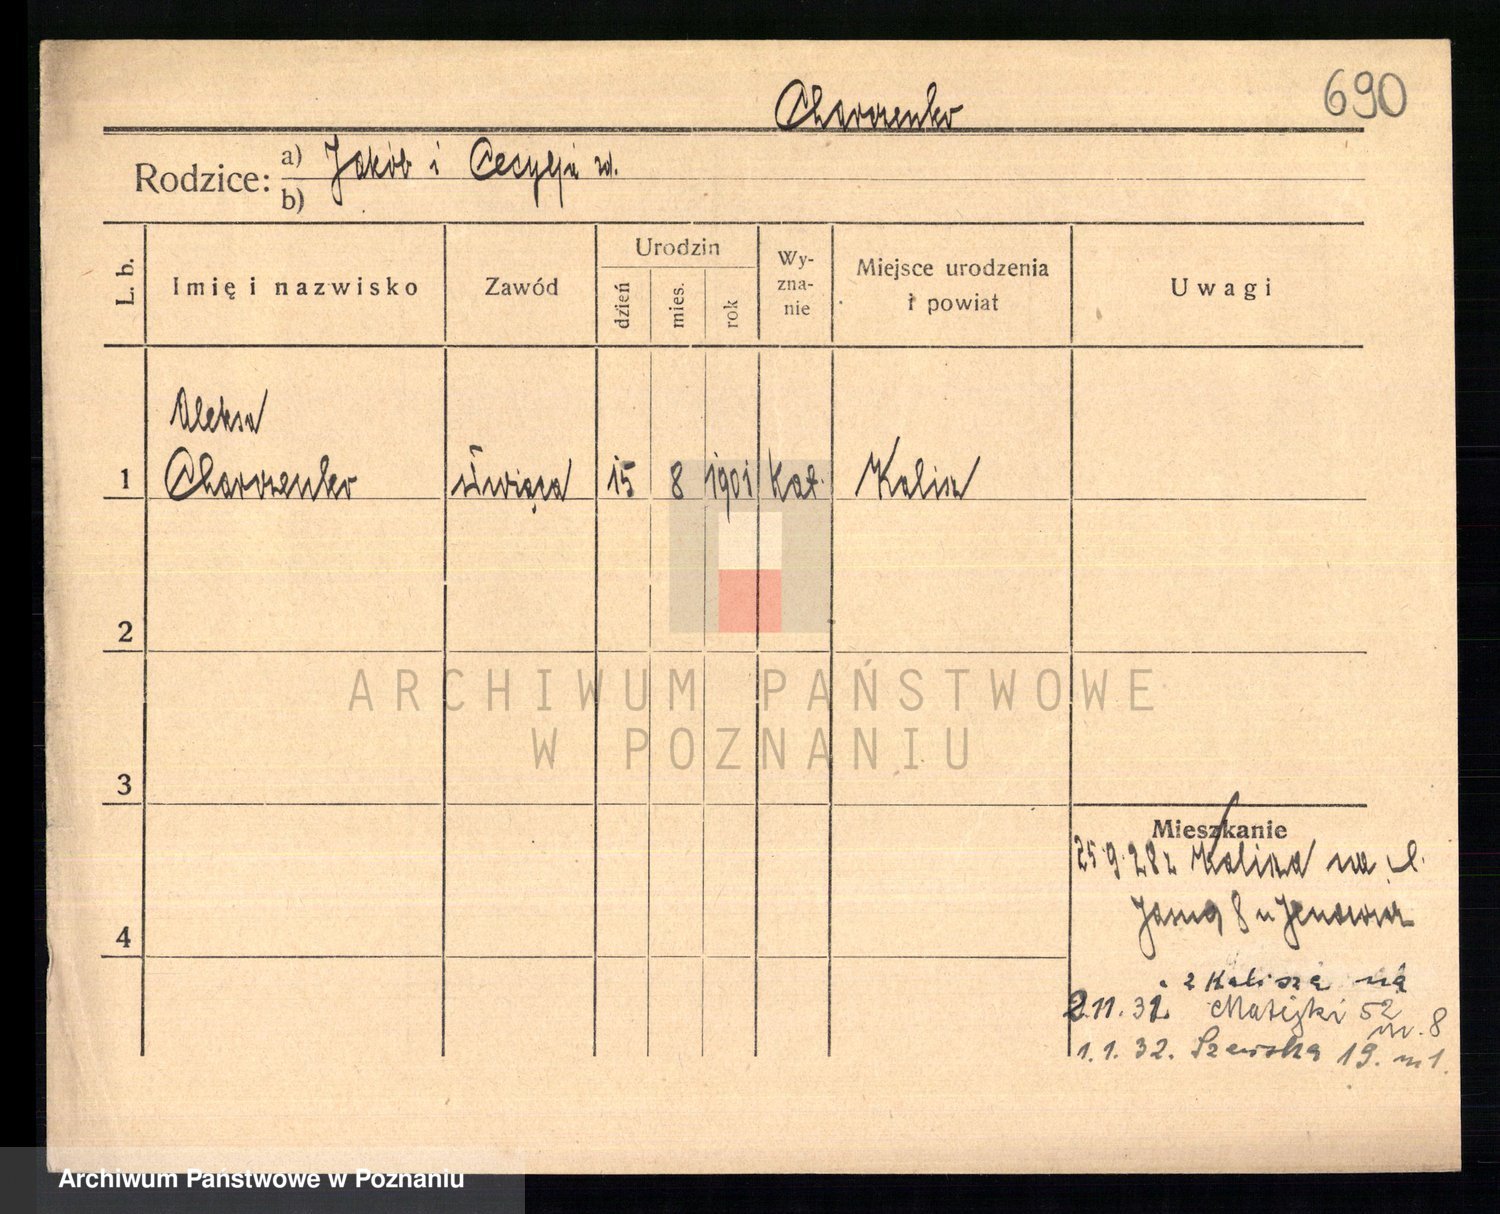 690
Rodzice: a) Jakób i Cecylja
b)
L. b.
Imię i nazwisko
Zawód
Urodzin
dzień
mies.
rok
Wy-
zna-
nie
Miejsce urodzenia
i powiat
Uwagi
1
15 8 1901 Kat. Kalisz
2
3
4
Mieszkanie
25.9.28 z Kalisza na ul.
Jasna 8 u
z Kalisza na
2.11.31. Matejki 52
m. 8
1.1.32. Szewska 19. m 1.
ARCHIWUM PAŃSTWOWE
W POZNANIU
Archiwum Państwowe w Poznaniu